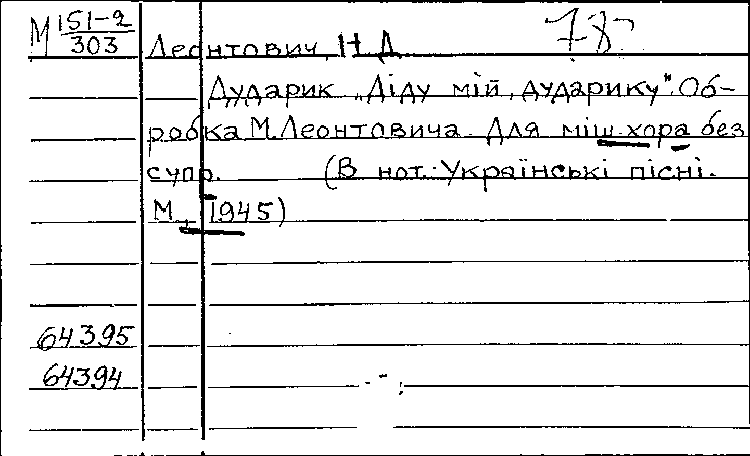 М 151-2
303
Леонтович, Н. Д. 78
Дударик „Діду мій, дударику“. Об-
робка М. Леонтовича. Для міш. хора без
супр. (В нот.: Українські пісні.
М., 1945)
64395
64394